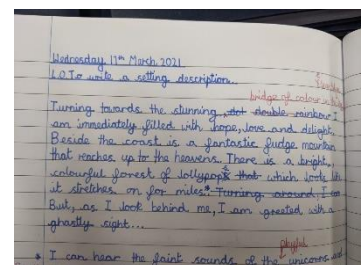 Wednesday 17th March 2021
L.O To write a setting description.
bridge of colour
Turning towards the stunning, dot double rainbow I
am immediately filled with hope, love and delight,
Beside the coast is a fantastic fudge mountain
that reaches up to the heavens. There is a bright,
colourful forest of lollypops that which looks like
it stretches on for miles.* Turning around, I can
But, as I look behind me, I am greeted with a
ghastly sight...
playful
* I can hear the faint sounds of the unicorns and